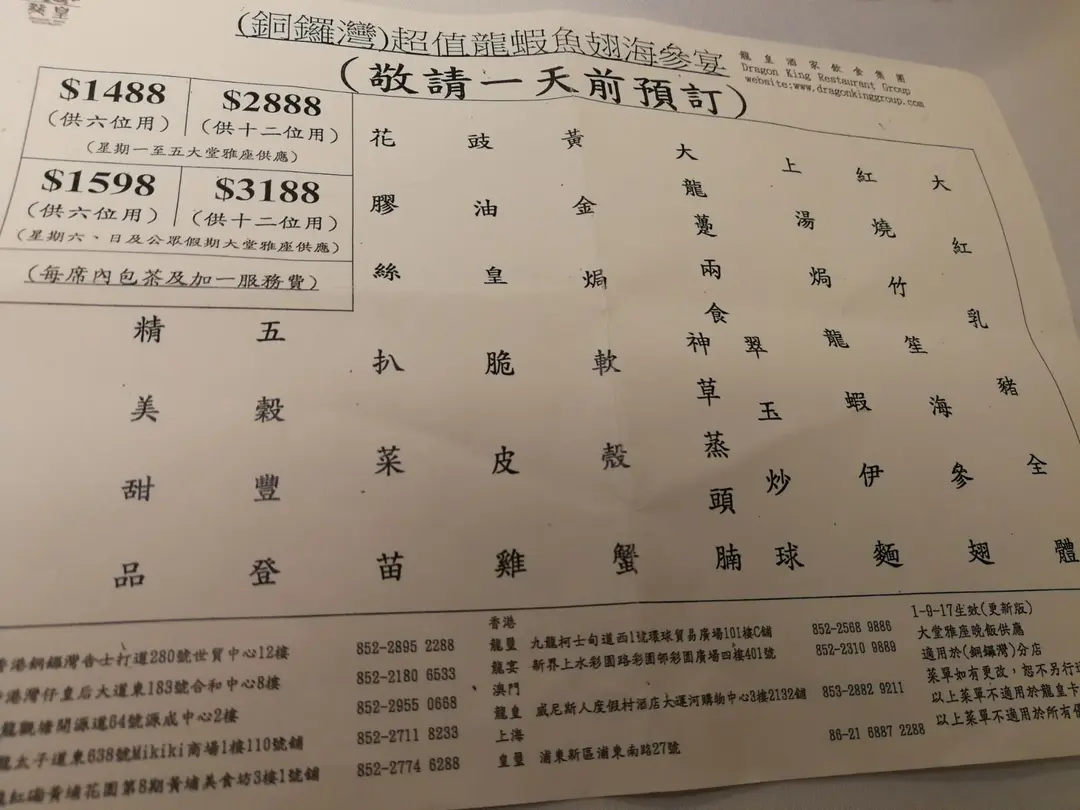 (銅鑼灣)超值龍蝦魚翅海參宴
(敬請一天前預訂)
龍皇酒家飲食集團
Dragon King Restaurant Group
website:www.dragonkinggroup.com
$1488
(供六位用)
$2888
(供十二位用)
(星期一至五大堂雅座供應)
$1598
(供六位用)
$3188
(供十二位用)
(星期六、日及公眾假期大堂雅座供應)
(每席內包茶及加一服務費)
大紅乳豬全體
紅燒竹笙海參翅
上湯焗龍蝦伊麵
大龍躉兩食
翠玉炒球
神草蒸頭腩
黃金焗軟殼蟹
豉油皇脆皮雞
花膠絲扒菜苗
五穀豐登
精美甜品
香港銅鑼灣告士打道280號世貿中心12樓 852-2895 2288
香港灣仔皇后大道東183號合和中心8樓 852-2180 6533
龍觀塘開源道64號源成中心2樓 852-2955 0668
龍太子道東638號Mikiki商場1樓110號舖 852-2711 8233
龍紅磡黃埔花園第8期黃埔美食坊3樓1號舖 852-2774 6288
香港
龍璽 九龍柯士甸道西1號環球貿易廣場101樓C舖 852-2568 9886
龍宴 新界上水彩園路彩園邨彩園廣場四樓401號 852-2310 9889
澳門
龍皇 威尼斯人度假村酒店大運河購物中心3樓2132舖 853-2882 9211
上海
皇璽 浦東新區浦東南路27號 86-21 6887 2288
1-9-17生效(更新版)
大堂雅座晚飯供應
適用於(銅鑼灣)分店
菜單如有更改，恕不另行
以上菜單不適用於龍皇卡
以上菜單不適用於所有